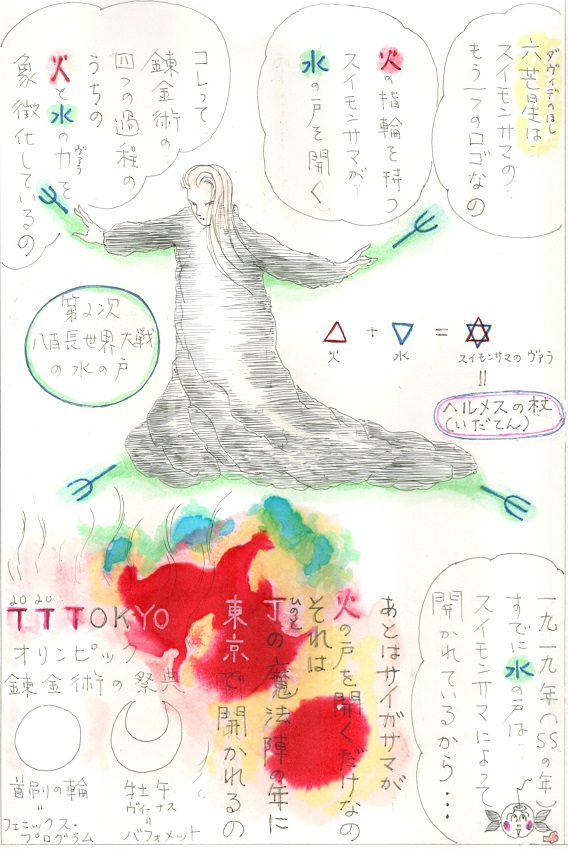 ダヴィデのほし
六芒星は
スイモンサマの
もう一つのロゴなの
火の指輪を持つ
スイモンサマが
水の戸を開く
コレって
錬金術の
四つの過程の
うちの
火と水の力を
ヴァラ
象徴化しているの
第2次
八百長世界大戦
の水の戸
△ + ▽ = ✡
火
水
スイモンサマのヴァラ
=
ヘルメスの杖
(いだてん)
一九一九年(SSの年)
すでに水の戸は
スイモンサマによって
開かれているから…
あとはサイガサマが
火の戸を開くだけなの
それは
ひのと
丁の魔法陣の年に
東京で開かれるの
2020
TTTOKYO
オリンピック
錬金術の祭典
首吊りの輪
=
フェニックス・
プログラム
牡牛
ヴィーナス
=
バフォメット